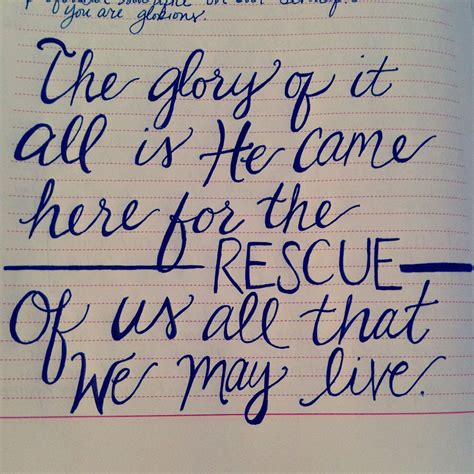 You are glorious.
The glory of it
all is He came
here for the
RESCUE
Of us all that
We may live.